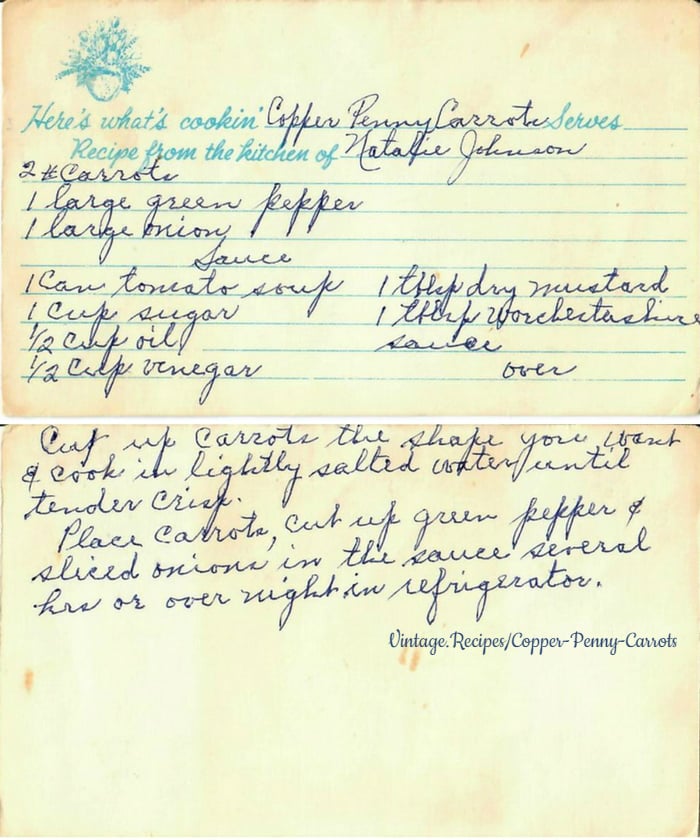 Here's what's cookin' Copper Penny Carrots Serves
Recipe from the kitchen of Natalie Johnson
2 # Carrots
1 large green pepper
1 large onion
Sauce
1 Can tomato soup 1 tblsp dry mustard
1 Cup sugar 1 tblsp Worchestershire
1/2 Cup oil sauce
1/2 Cup vinegar over
Cut up Carrots the shape you want
& cook in lightly salted water until
tender Crisp.
Place Carrots, cut up green pepper &
sliced onions in the sauce several
hrs or over night in refrigerator.
Vintage.Recipes/Copper-Penny-Carrots